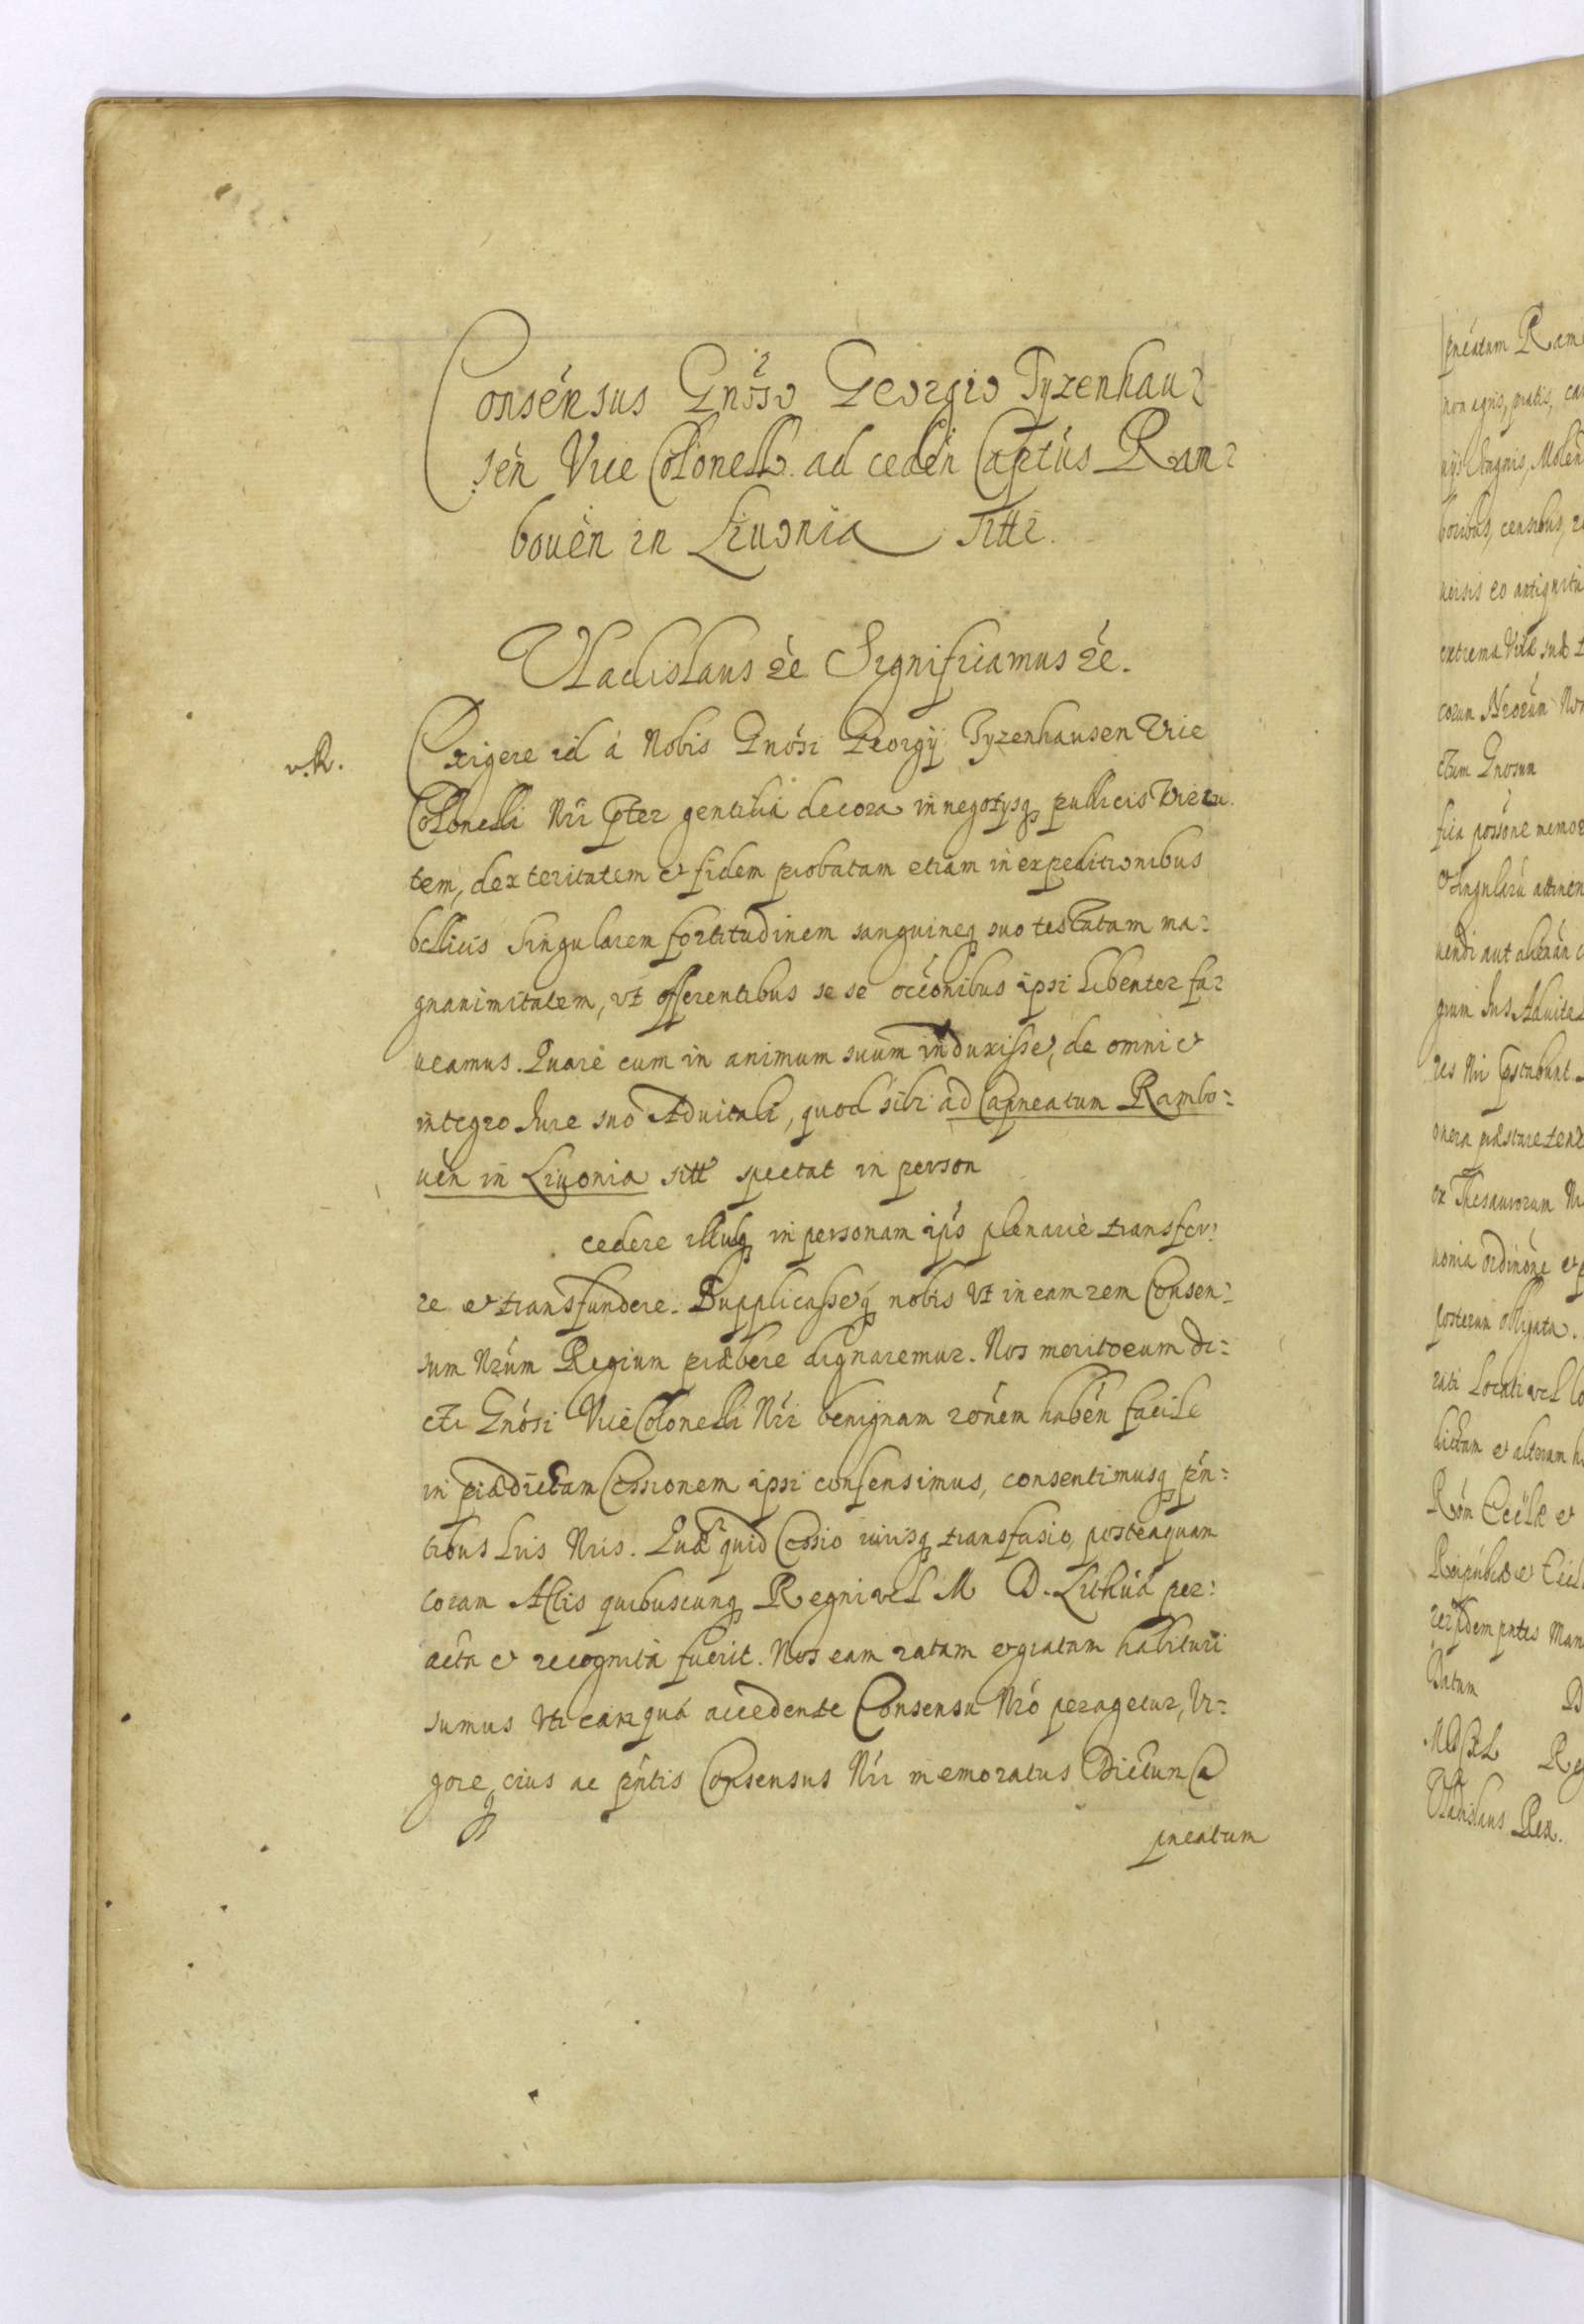 Consensus Gnoso Georgio Tyzenhau-
sen Vice Colonello ad ceden Captus Ram-
bouen in Liuonia sitti.
Vladislaus &c Significamus &c.
v.R.
Exigere id á Nobis Gnosi Georgij Tyzenhausen Vice
Colonelli Nri pter gentilia decora in negotijsq publicis virtu-
tem, dexteritatem et fidem probatam etiam in expeditionibus
bellicis singularem fortitudinem sanguineq suo testatam ma-
gnanimitatem, vt offerentibus se se occonibus ipsi libenter fa-
ueamus. Quare cum in animum suum induxisse, de omni et
integro Jure suo Aduitali, quod sibi ad Capneatum Rambo-
uen in Liuonia sitt spectat in person
cedere illudq in personam ips plenarie transfer-
re et transfundere. Supplicasseq nobis vt in eam rem Consen-
sum Nrum Regium præbere dignaremur. Nos meritorum di-
cti Gnosi Vice Colonelli Nri benignam ronem haben facile
in prædictam Cessionem ipsi consensimus, consentimusq pn-
tibus Lris Nris. Quæ quid Cessio iurisq transfusio, posteaquam
coram Actis quibuscunq Regni vel M D. Lithuá per-
acta et recognita fuerit. Nos eam ratam et gratam habituri
sumus vti eam quá accedente Consensu Nro peragetur, Vi-
gore eius ac pntis Consensus Nri memoratus Dictum Ca
pneatum
pneatum Ram
non agris, pratis, cam
boribus, censibus, re
uersis eo antiquitu
extrema Vitæ suæ t
corum Nrorum Nos
ctum Gnosum
fica possone memor
et singularu attinen
uendi aut alienan
gium Jus Aduita
res Nri
onera præstare
ex Thesaurorum Nr
uonia ordinone et
posterum obligata.
dictam et alteram h
Rom Cclæ et
Reipublcæ et Ccl
Datum
Reg
Vladislaus Rex.